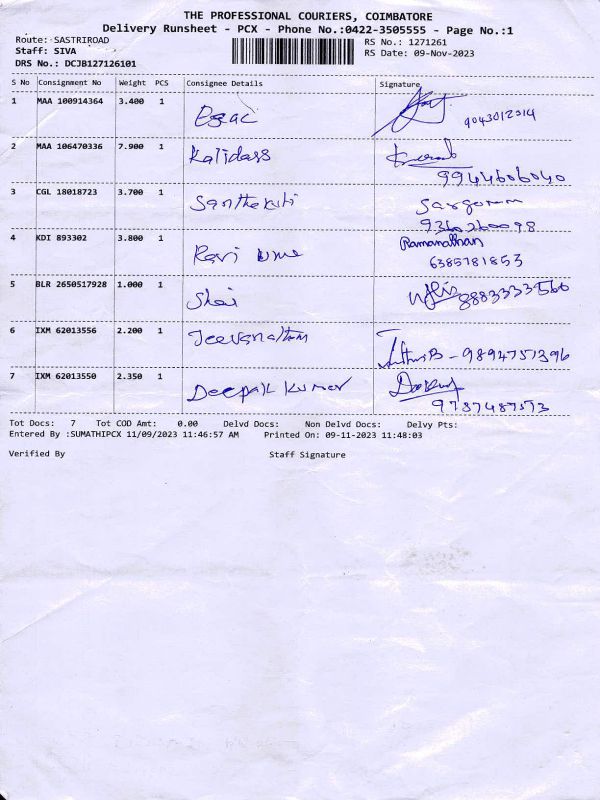 THE PROFESSIONAL COURIERS, COIMBATORE
Delivery Runsheet - PCX - Phone No.:0422-3505555 - Page No.:1
Route: SASTRIROAD RS No.: 1271261
Staff: SIVA RS Date: 09-Nov-2023
DRS No.: DCJB127126101
S No Consignment No Weight PCS Consignee Details Signature
1 MAA 100914364 3.400 1 9043012014
2 MAA 106470336 7.900 1 Kalidass
9944606040
3 CGL 18018723 3.700 1
9360260098
4 KDI 893302 3.800 1 Ravi Ramanathan
6385781853
5 BLR 2650517928 1.000 1 8883333560
6 IXM 62013556 2.200 1
9894751396
7 IXM 62013550 2.350 1 Deepak Kumar
9787487573
Tot Docs: 7 Tot COD Amt: 0.00 Delvd Docs: Non Delvd Docs: Delvy Pts:
Entered By :SUMATHIPCX 11/09/2023 11:46:57 AM Printed On: 09-11-2023 11:48:03
Verified By Staff Signature